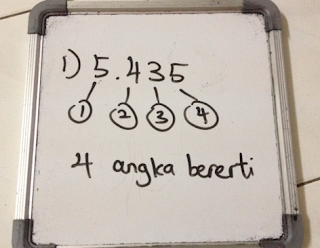 1) 5.435
1 2 3 4
4 angka bererti